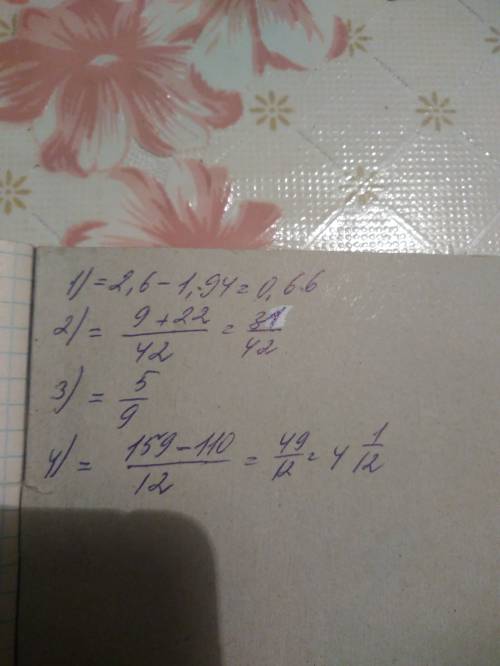 1) = 2,6 - 1,94 = 0,66
2) = 9 + 22 / 42 = 31 / 42
3) = 5 / 9
4) = 159 - 110 / 12 = 49 / 12 = 4 1 / 12